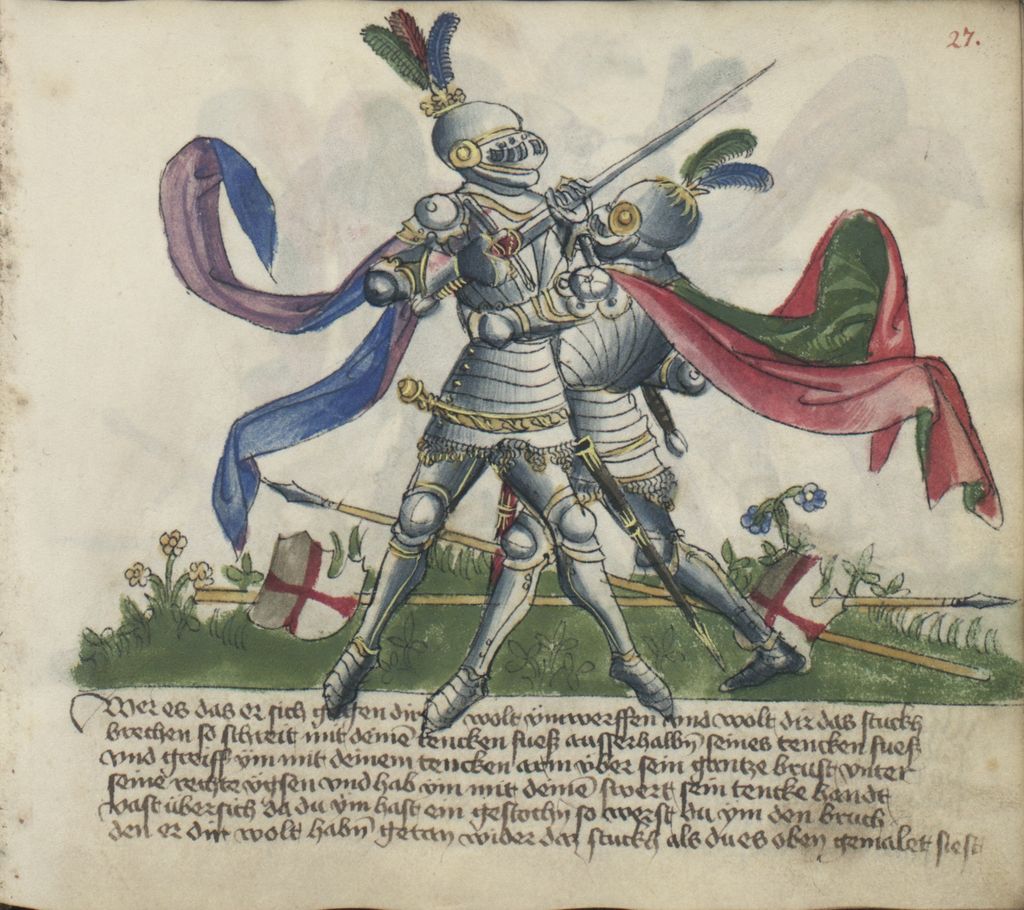 27.
Wer es das er sich gegen dir wolt ÿmwerffen vnd wolt dir das stuckh
brechen so schreit mit deinē tencken fueß ausserhalbn̄ seines tencken fueß
vnd greiff ÿm mit deinem tencken arm vber sein gantze brust vnter
seinē rechte vgsen vnd hab ÿm mit deinē swert sein tencke handt
vast übersich da du ÿm hast ein gestochn̄ so werst du ÿm den bruch
den er dir wolt habn̄ getan wider daz stuckh als du es oben gemalet siest